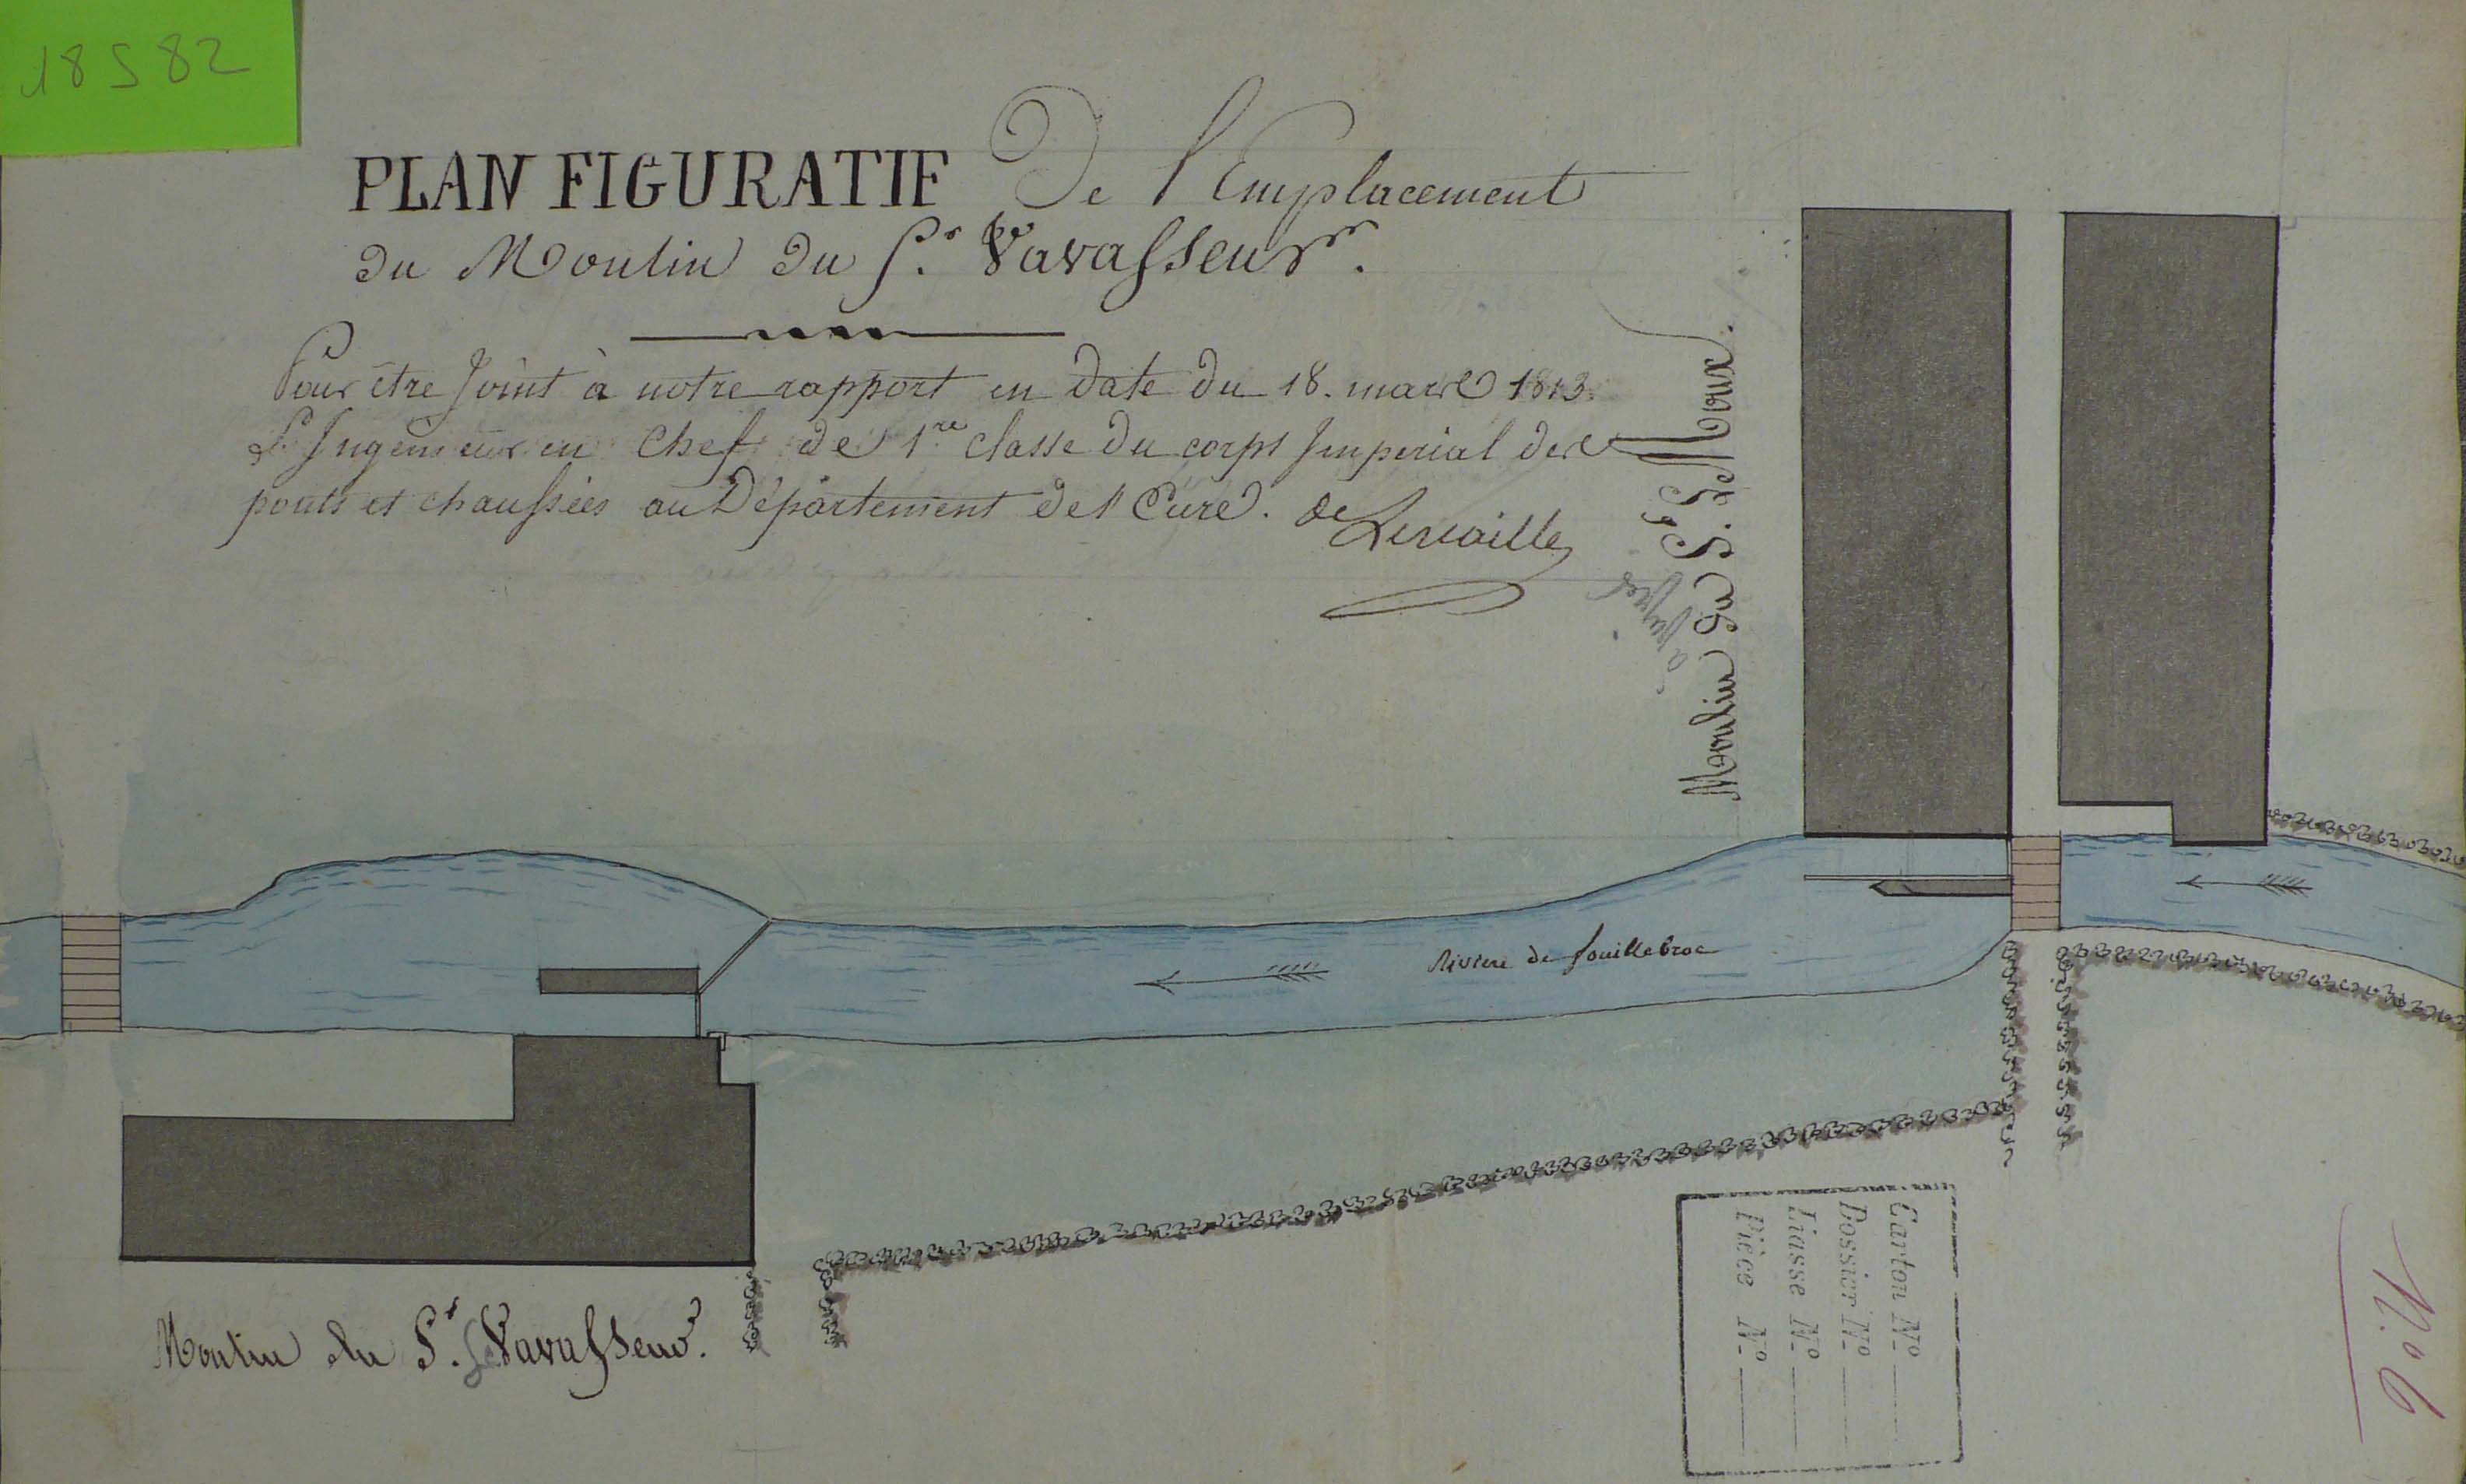 18 S 82
PLAN FIGURATIF De l'Emplacement
du Moulin du Sr. Vavasseur.
Pour être Joint à notre rapport en date du 18. mars 1813.
L'Ingenieur en chef de 1re classe du corps Imperial des
ponts et chaussées au Département de l'Eure.
Moulin du Sr. Le Roux.
Riviere de fouillebroc
Moulin du Sr. Le Vavasseur.
Carton No.
Dossier No.
Liasse No.
Pièce No.
No 6